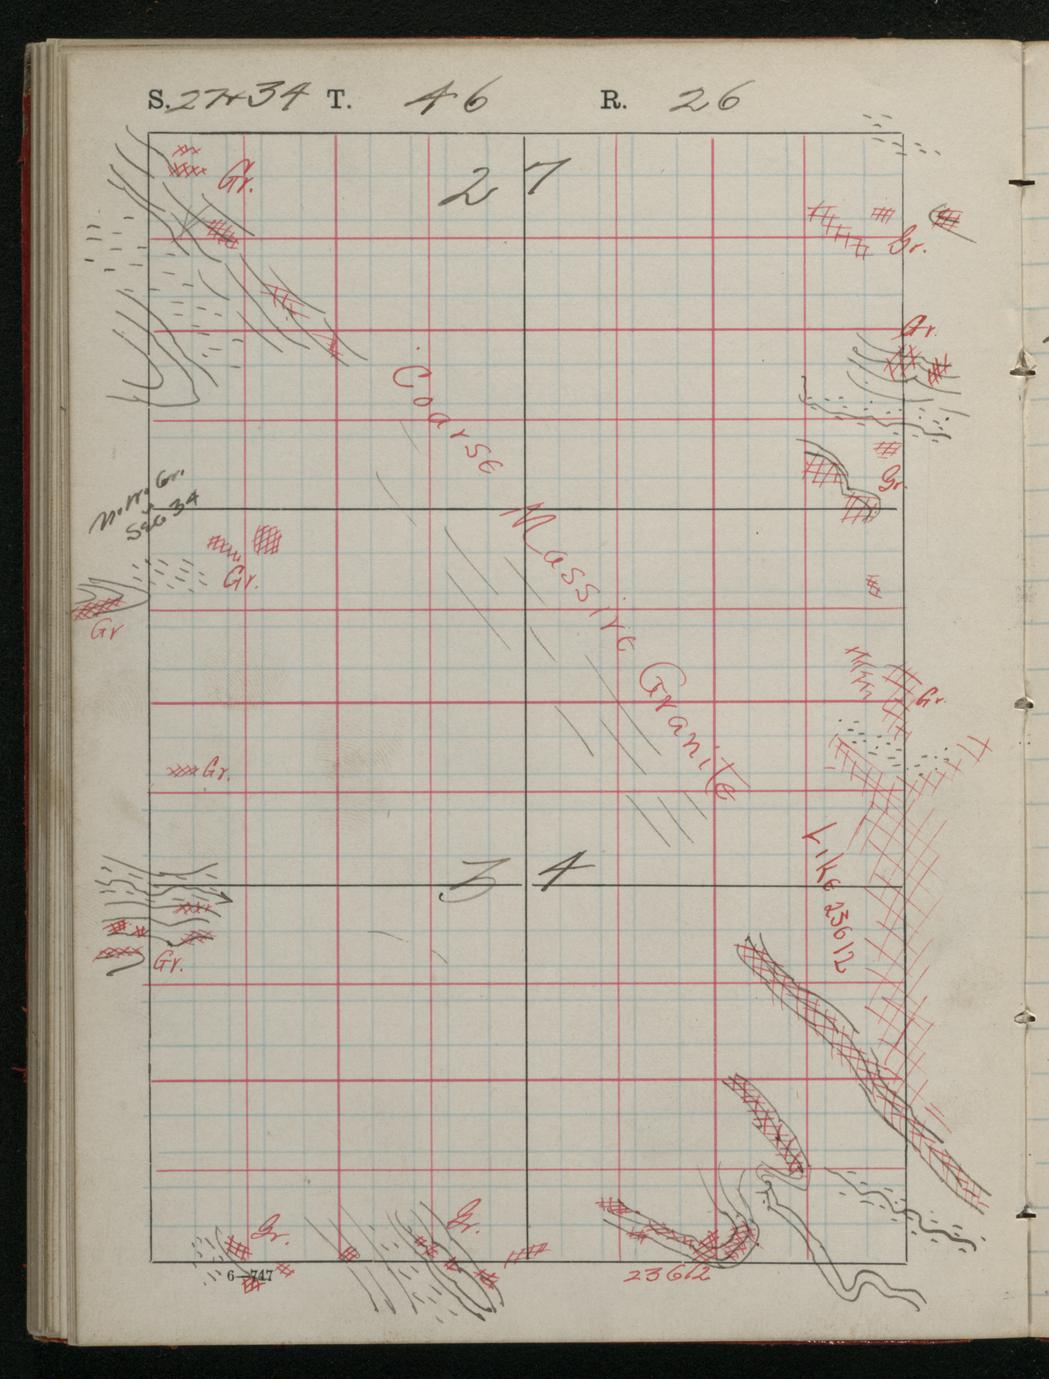 S. 27+34 T. 46 R. 26
27
Gr.
Gr.
Gr.
Coarse Massive Granite
Gr.
Sec 34
Gr.
Gr
Gr.
Gr.
34
Like 23612
Gr.
Gr.
Gr.
23612
6—747